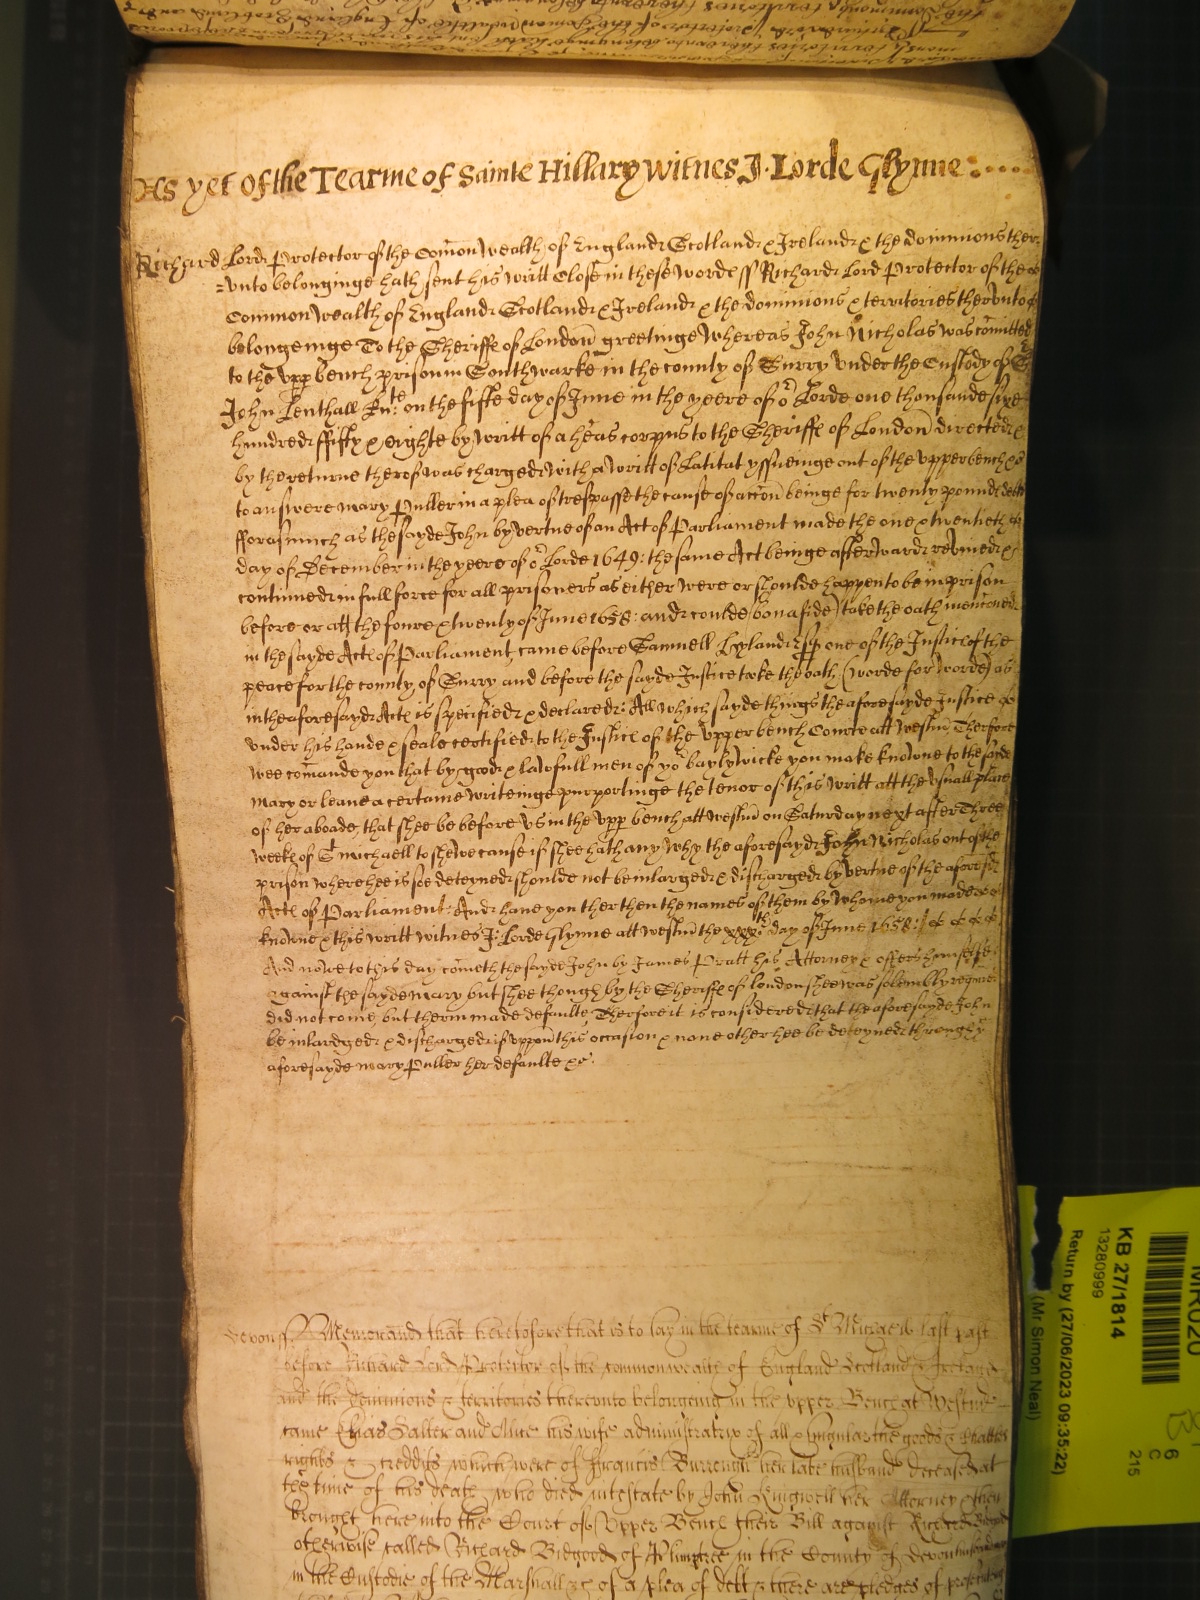 As yet of the Tearme of Sainte Hillary Witnes J. Lorde Glynne
Richard Lord Protector of the Com̄on Wealth of England Scotland & Ireland & the dominions ther
=vnto belonginge hath sent his writt Close in these wordes ss Richard Lord Protector of the
Common Wealth of England Scotland & Ireland & the dominions & territories thervnto
belongeinge To the Sheriffe of London greetinge Whereas John Nicholas was com̄itted
to the vpp bench prison in Southwarke in the county of Surry vnder the Custody of
John Lenthall Knt. on the fifte day of June in the yeere of or Lorde one thousande sixe
hundred ffifty & eighte by writt of a heas corpus to the Sheriffe of London directed &
by the returne therof was charged with a writt of Latitat yssueinge out of the vpper bench
to answere mary Puller in a plea of trespasse the cause of accon beinge for twenty pound debt
fforasmuch as the sayde John by vertue of an Act of Parliament made the one & twentieth
day of December in the yeere of or Lorde 1649: the same Act beinge afterward revived &
continued in full force for all prisoners as either were or shoulde happen to be in prison
before or att the foure & twenty of June 1658: and coulde (bona fide) take the oath menconed
in the sayde Acte of Parliament, came before Samuell Hyland Esq one of the Justices of the
peace for the county of Surry and before the sayde Justice tooke the oath (worde for worde) as
in the aforesayd Acte is specified & declared: All which sayde things the aforesayde Justice
vnder his hande & seale certified to the Justice of the vpper bench Courte att Westm̄ Therfore
wee com̄ande you that by good & lawfull men of yor baylywicke you make knowne to the sayde
mary or leaue a certaine writeinge purportinge the tenor of this writt att the vsuall place
of her aboade, that shee be before vs in the vpp bench att westm̄ on Saturday next after Three
weekes of St michaell to shewe cause if shee hath any, why the aforesayd John Nicholas out of the
prison where hee is soe deteyned shoulde not be inlarged & discharged by vertue of the aforesd
Acte of Parliament: And haue you ther then the names of them by whome you made
knowne & this writt witnes J: Lorde Glynne att westm̄ the xxxth day of June 1658:
And nowe to this day cometh the sayde John by James Pratt his Attorney & offers himselfe
against the sayde mary but shee though by the Sheriffe of London shee was solemly required
did not come, but therin made defaulte, Therfore it is considered that the aforesayde John
be inlarged & discharged if vppon this occasion & none other hee be deteyned through ye
aforesayde mary Puller her defaulte &c.
Devon ss Memorand that heretofore that is to say in the tearme of St Michaels last past
before Richard Lord Protector of the commonwealth of England Scotland & Ireland
and the Dominions & territories thereunto belongeing in the upper Bench at Westm̄
came Elias Salter and Alice his wife administratrix of all & singular the goods & Chattles
rights & creddits which were of Francis Burrough her late husband deceased at
the time of his death who died intestate by John Kingwell her Attorney & then
brought here into the Court of Upper Bench their Bill against Richard Bidgod
otherwise called Richard Bidgood of Plimtree in the County of Devon husbandman
in the Custodie of the Marshall &c of a plea of debt & there are pledges of prosecuting
KB 27/1814
13280999
Return by (27/06/2023 09:35:22)
(Mr Simon Neal)
MR020
6
C
215